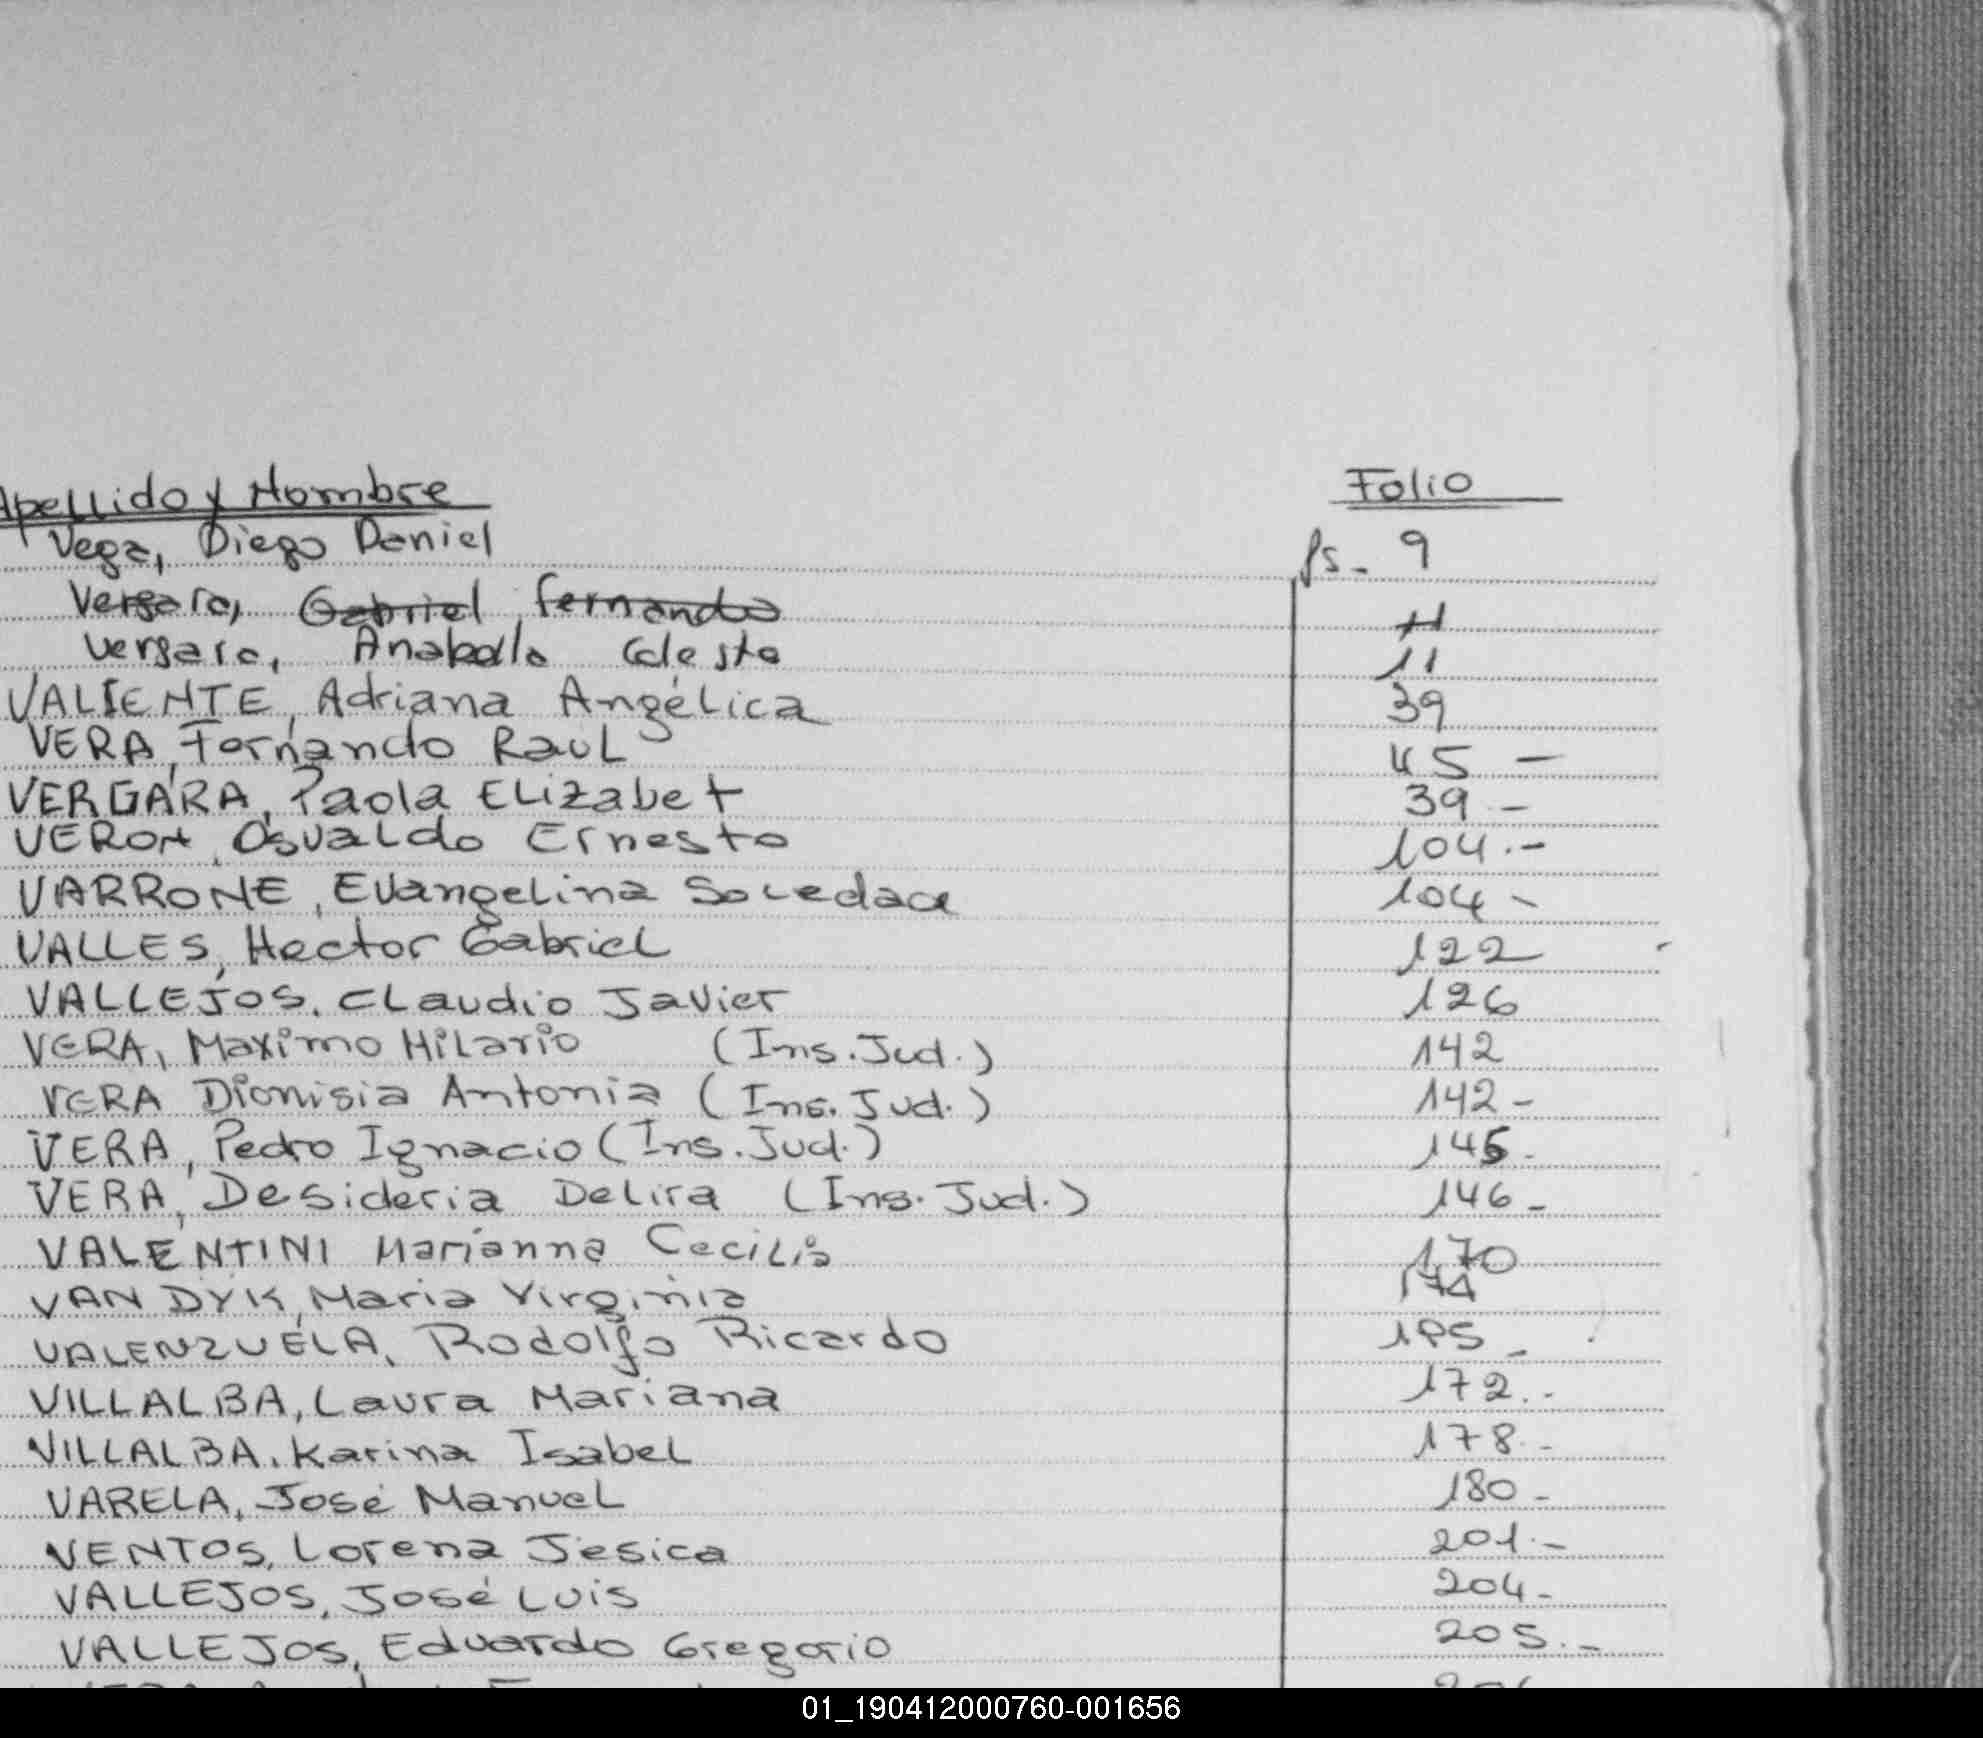 Apellido y Nombre Folio
Vega, Diego Daniel fs - 9
Vergara, Gabriel Fernando 11
Vergara, Anabella Celeste 11
VALIENTE, Adriana Angélica 39
VERA, Fernando Raul 45 -
VERGARA, Paola Elizabet 39 -
VERON, Osvaldo Ernesto 104.-
VARRONE, Evangelina Soledad 104 -
VALLES, Hector Gabriel 122
VALLEJOS, Claudio Javier 126
VERA, Maximo Hilario (Ins. Jud.) 142
VERA Dionisia Antonia (Ins. Jud.) 142 -
VERA, Pedro Ignacio (Ins. Jud.) 145 -
VERA, Desideria Delira (Ins. Jud.) 146 -
VALENTINI Marianna Cecilia 170
VAN DYK, Maria Virginia 174
VALENZUELA, Rodolfo Ricardo -
VILLALBA, Laura Mariana 172.-
VILLALBA, Karina Isabel 178.-
VARELA, José Manuel 180 -
VENTOS, Lorena Jesica 201.-
VALLEJOS, José Luis 204 -
VALLEJOS, Eduardo Gregorio 205.-
01_190412000760-001656